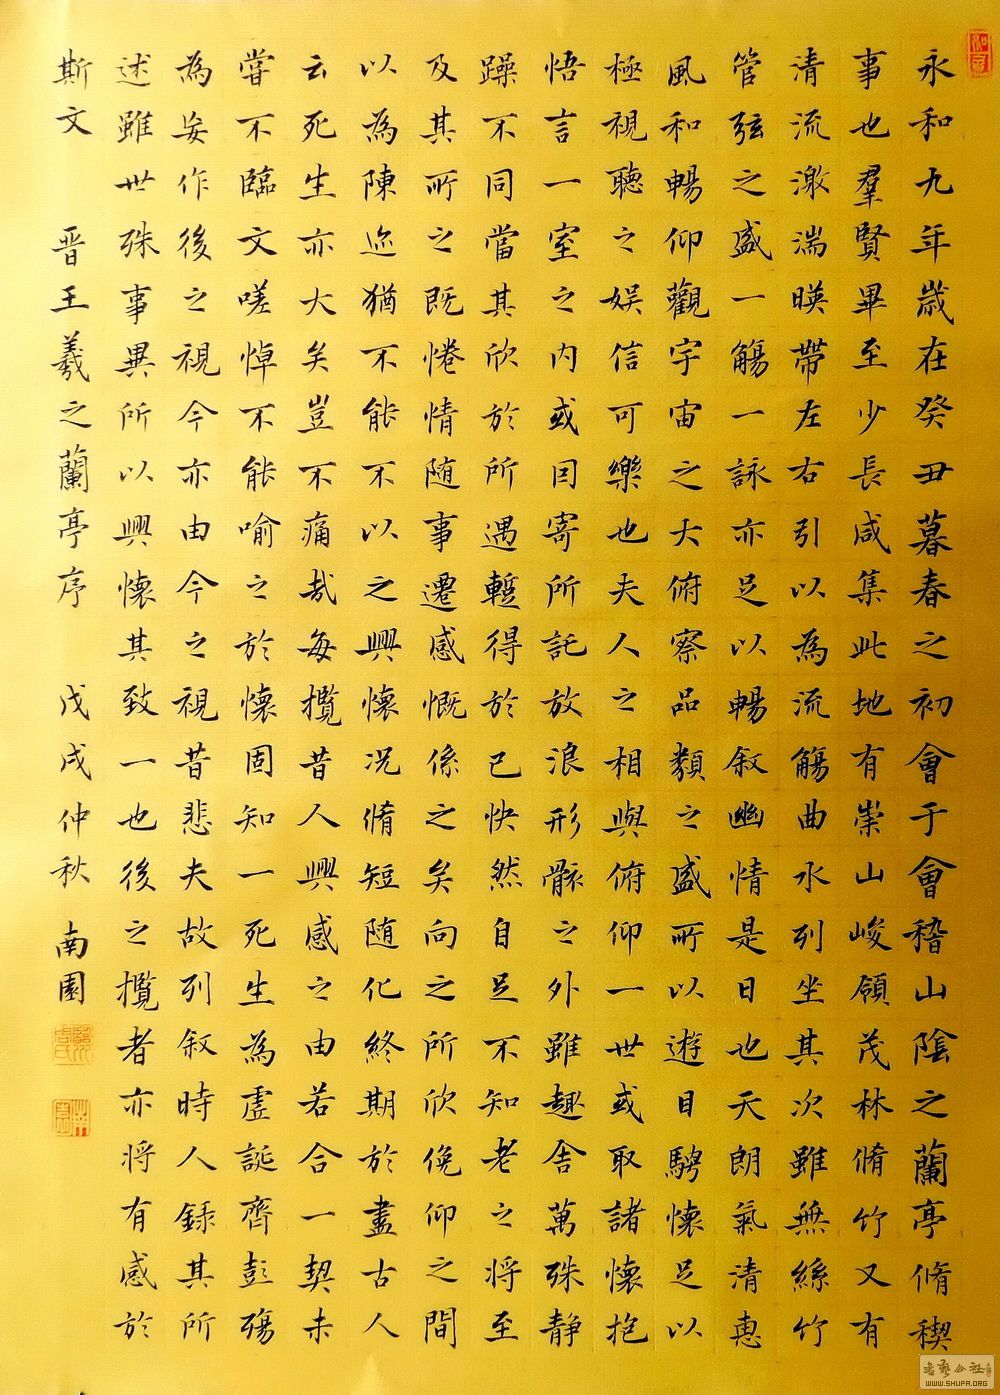 永和九年歲在癸丑暮春之初會于會稽山陰之蘭亭脩稧
事也羣賢畢至少長咸集此地有崇山峻領茂林脩竹又有
清流激湍暎帶左右引以為流觴曲水列坐其次雖無絲竹
管弦之盛一觴一詠亦足以暢叙幽情是日也天朗氣清惠
風和暢仰觀宇宙之大俯察品類之盛所以遊目騁懷足以
極視聽之娛信可樂也夫人之相與俯仰一世或取諸懷抱
悟言一室之内或因寄所託放浪形骸之外雖趣舍萬殊静
躁不同當其欣於所遇暫得於己快然自足不知老之將至
及其所之既惓情随事遷感慨係之矣向之所欣俛仰之間
以為陳迹猶不能不以之興懷况脩短随化終期於盡古人
云死生亦大矣豈不痛哉每攬昔人興感之由若合一契未
嘗不臨文嗟悼不能喻之於懷固知一死生為虛誕齊彭殤
為妄作後之視今亦由今之視昔悲夫故列叙時人錄其所
述雖世殊事異所以興懷其致一也後之攬者亦將有感於
斯文 晋王羲之蘭亭序 戊戌仲秋 南園
WWW.SHUFA.ORG